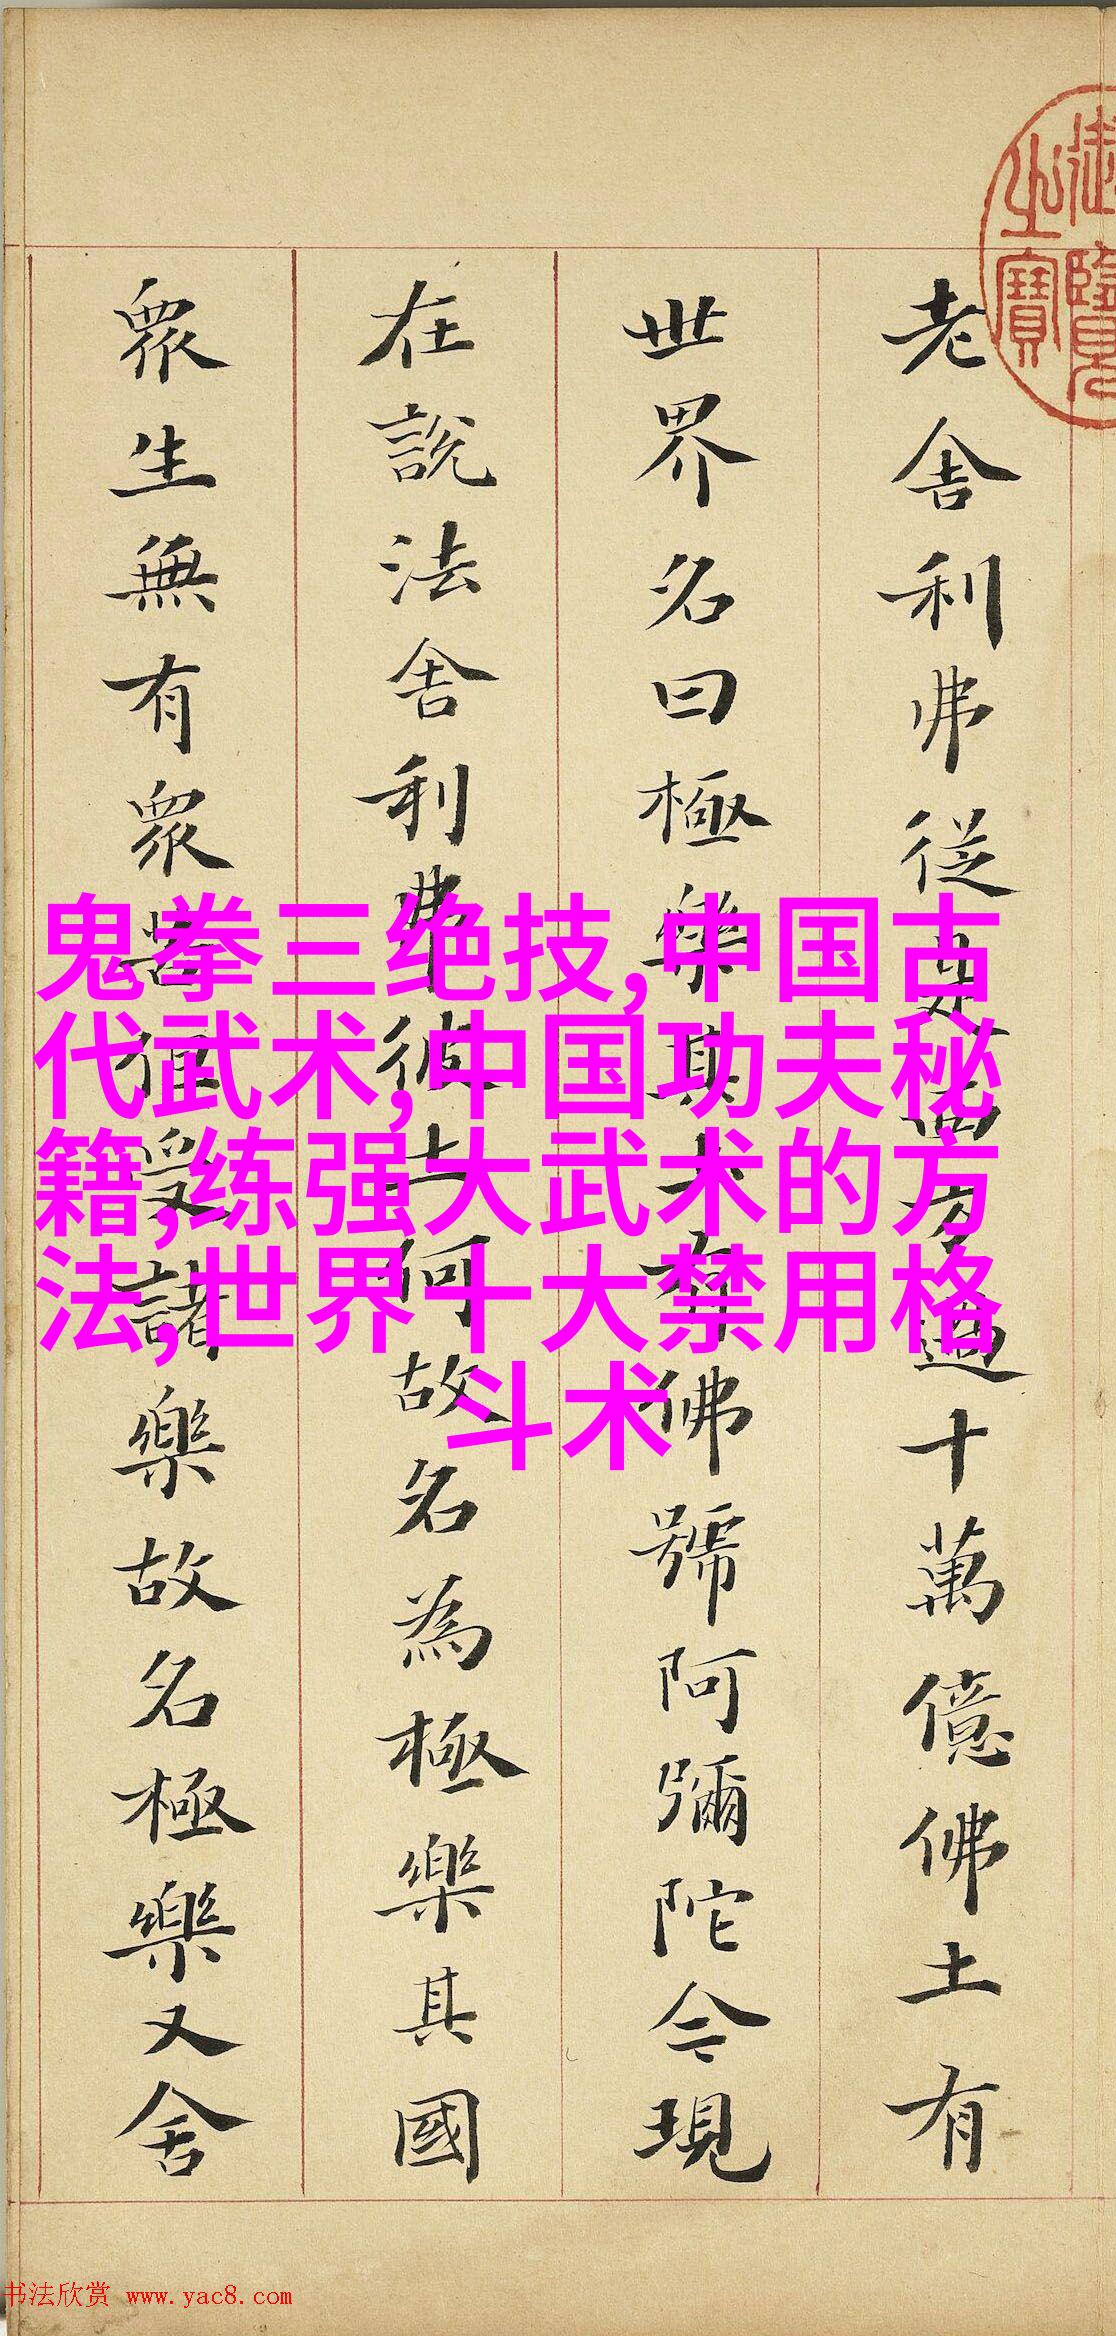 御覽
之寶
老舍利弗從是西方過十萬億佛土有
世界名曰極樂其土有佛號阿彌陀今現
在說法舍利弗彼土何故名為極樂其國
眾生無有眾苦但受諸樂故名極樂又舍
鬼拳三绝技,中国古
代武术,中国功夫秘
籍,练强大武术的方
法,世界十大禁用格
斗术
书法欣赏 www.yac8.com